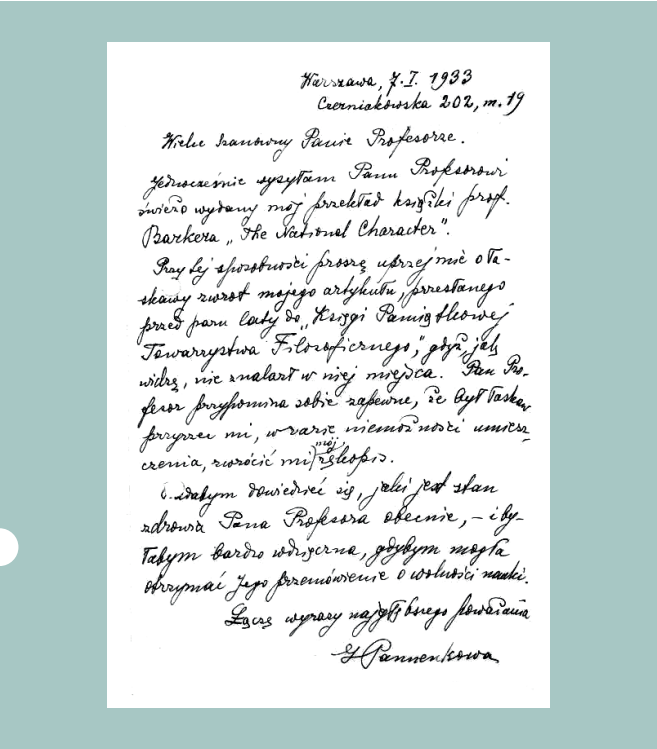 Warszawa, 7.I. 1933
Czerniakowska 202, m. 19
Wielce Szanowny Panie Profesorze.
Jednocześnie wysyłam Panu Profesorowi
świeżo wydany mój przekład książki prof.
Barkera „The National Character".
Przy tej sposobności proszę uprzejmie o ła-
skawy zwrot mojego artykułu, przesłanego
przed paru laty do „Księgi Pamiątkowej
Towarzystwa Filozoficznego", gdyż, jak
widzę, nie znalazł w niej miejsca. Pan Pro-
fesor przypomina sobie zapewne, że był łaskaw
przyrzec mi, w razie niemożności umiesz-
czenia, zwrócić mi mój rękopis.
dowiedzieć się, jaki jest stan
zdrowia Pana Profesora obecnie, – i by-
łabym bardzo wdzięczna, gdybym mogła
otrzymać Jego przemówienie o wolności nauki.
Łączę wyrazy najgłębszego poważania
I Pannenkowa